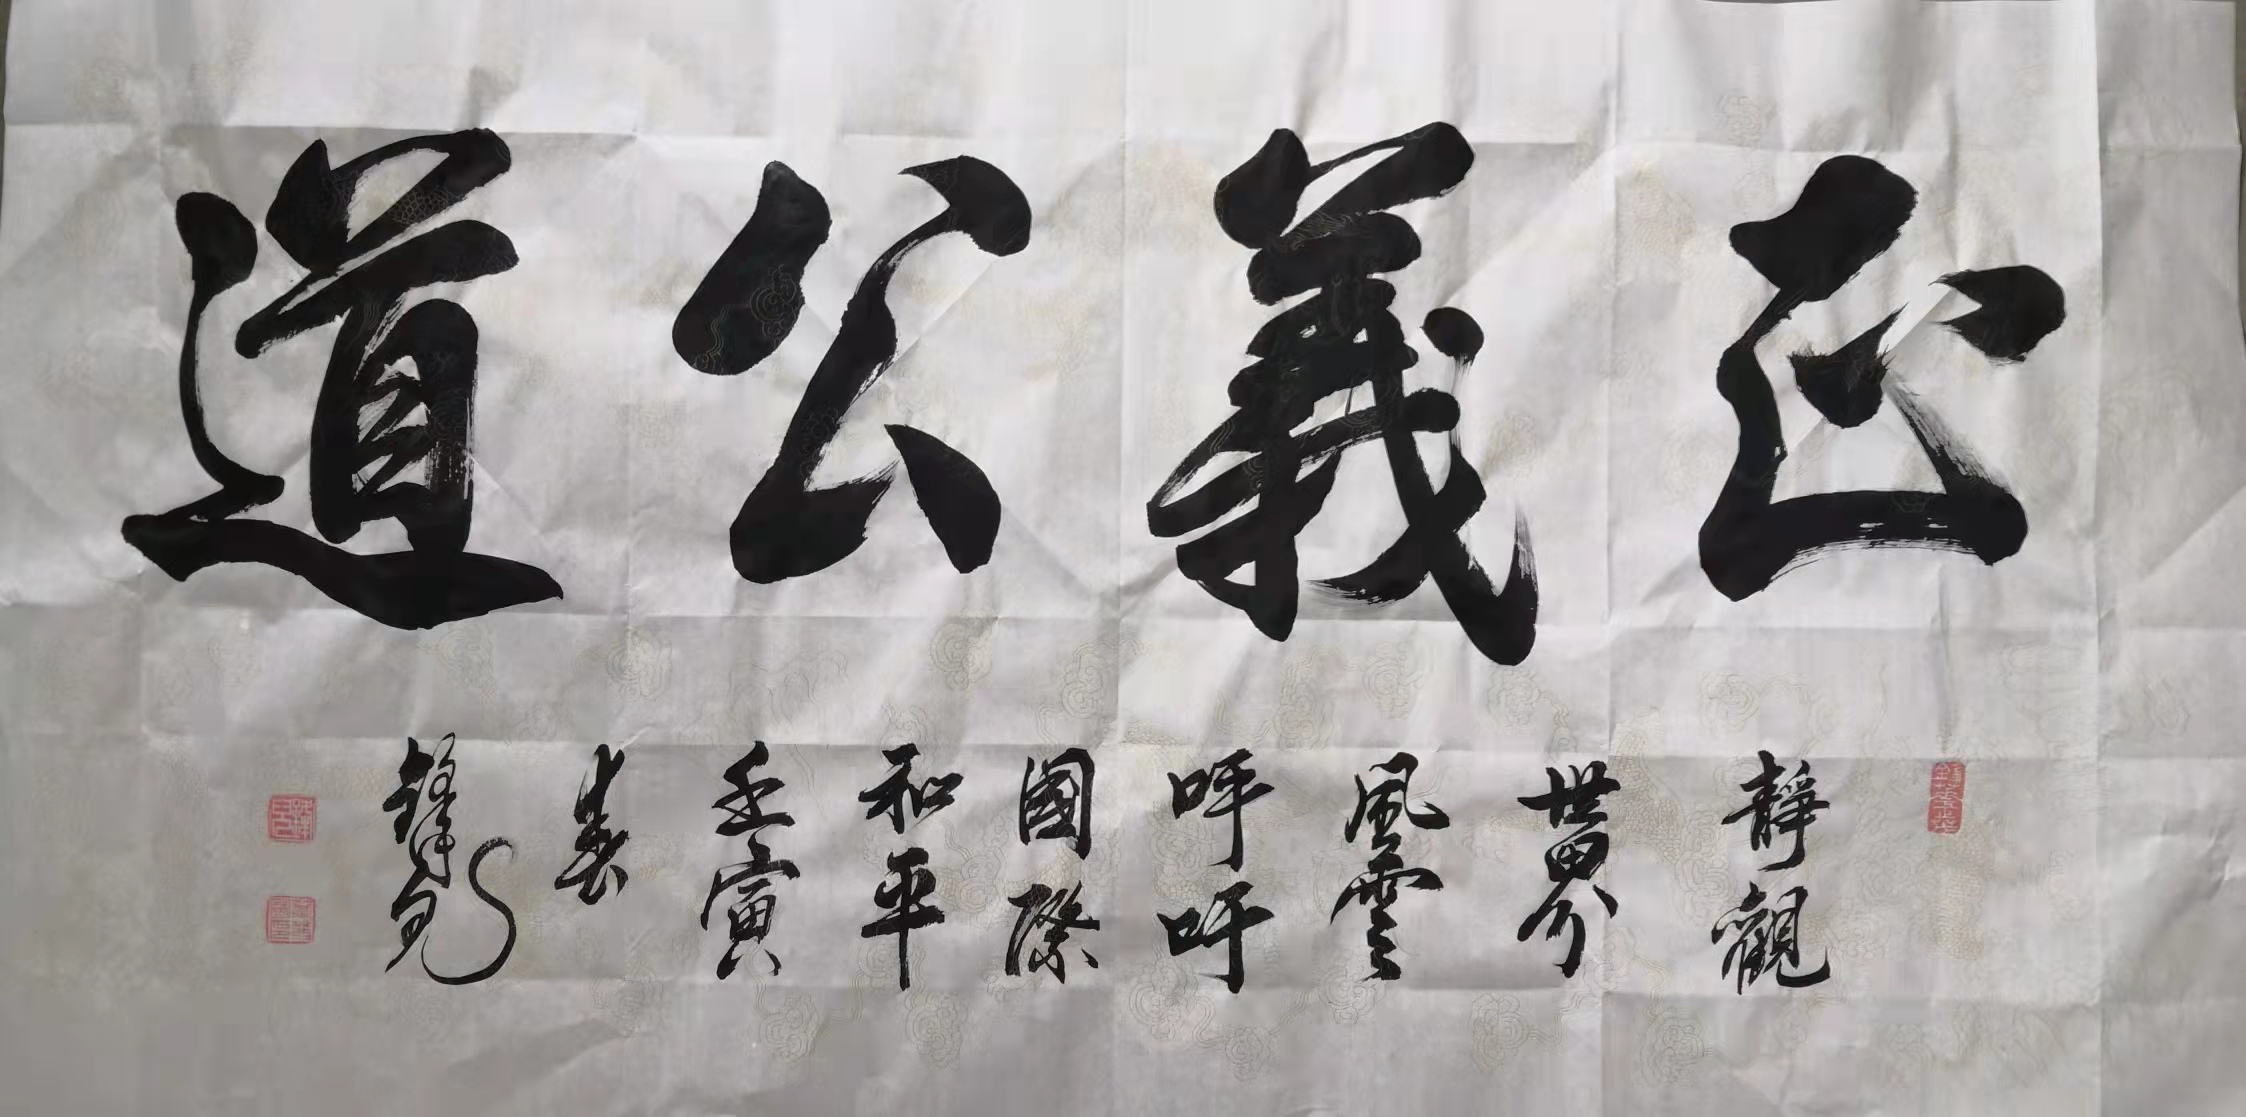 正義公道
靜觀
世界
風雲
呼吁
國際
和平
壬寅
春
鋒